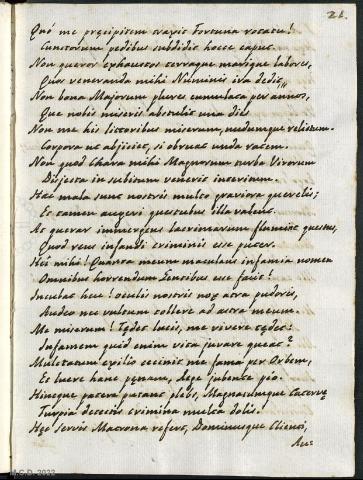 21.
Quò me præcipitem traxit Fortuna rotatu!
Cunctorum pedibus subdidit hocce caput.
Non queror exhaustos terraque marique labores,
Quos veneranda mihi Numinis ira dedit,
Non bona Majorum plures cumulata per annos,
Que nobis miseris abstulit una dies
Non me his littoribus miserum, nudumque relictum.
Corpora ut abjiciet, si obruat unda ratem.
Non quod Chara mihi Magnorum turba Virorum
Disjecta in subitum venerit interitum.
Hæc mala sunt nostris multo graviora querelis;
Et tamen augeri questubus illa valent.
At querar immergens lacrimarum flumine questus,
Quod reus infandi criminis esse puter.
Hei mihi! Quanta meum maculans infamia nomen
Omnibus horrendum Gentibus esse facit!
Incubat heu! oculis nostris nox atra pudoris,
Audeo nec vultum tollere ad astra meum.
Me miserum! Tędet lucis, me vivere tędet:
Infamem quid enim vita juvare queat?
Multatum exilio cecinit me fama per Orbem,
Et luere hanc pęnam, Rege jubente pio.
Hincque patera putant plebs, Magnatumque Catervę
Turpia detectis crimina multa dolis.
Hęc servis Matrona refert, Dominusque Clienti,
Au=
M.C.D. 2022